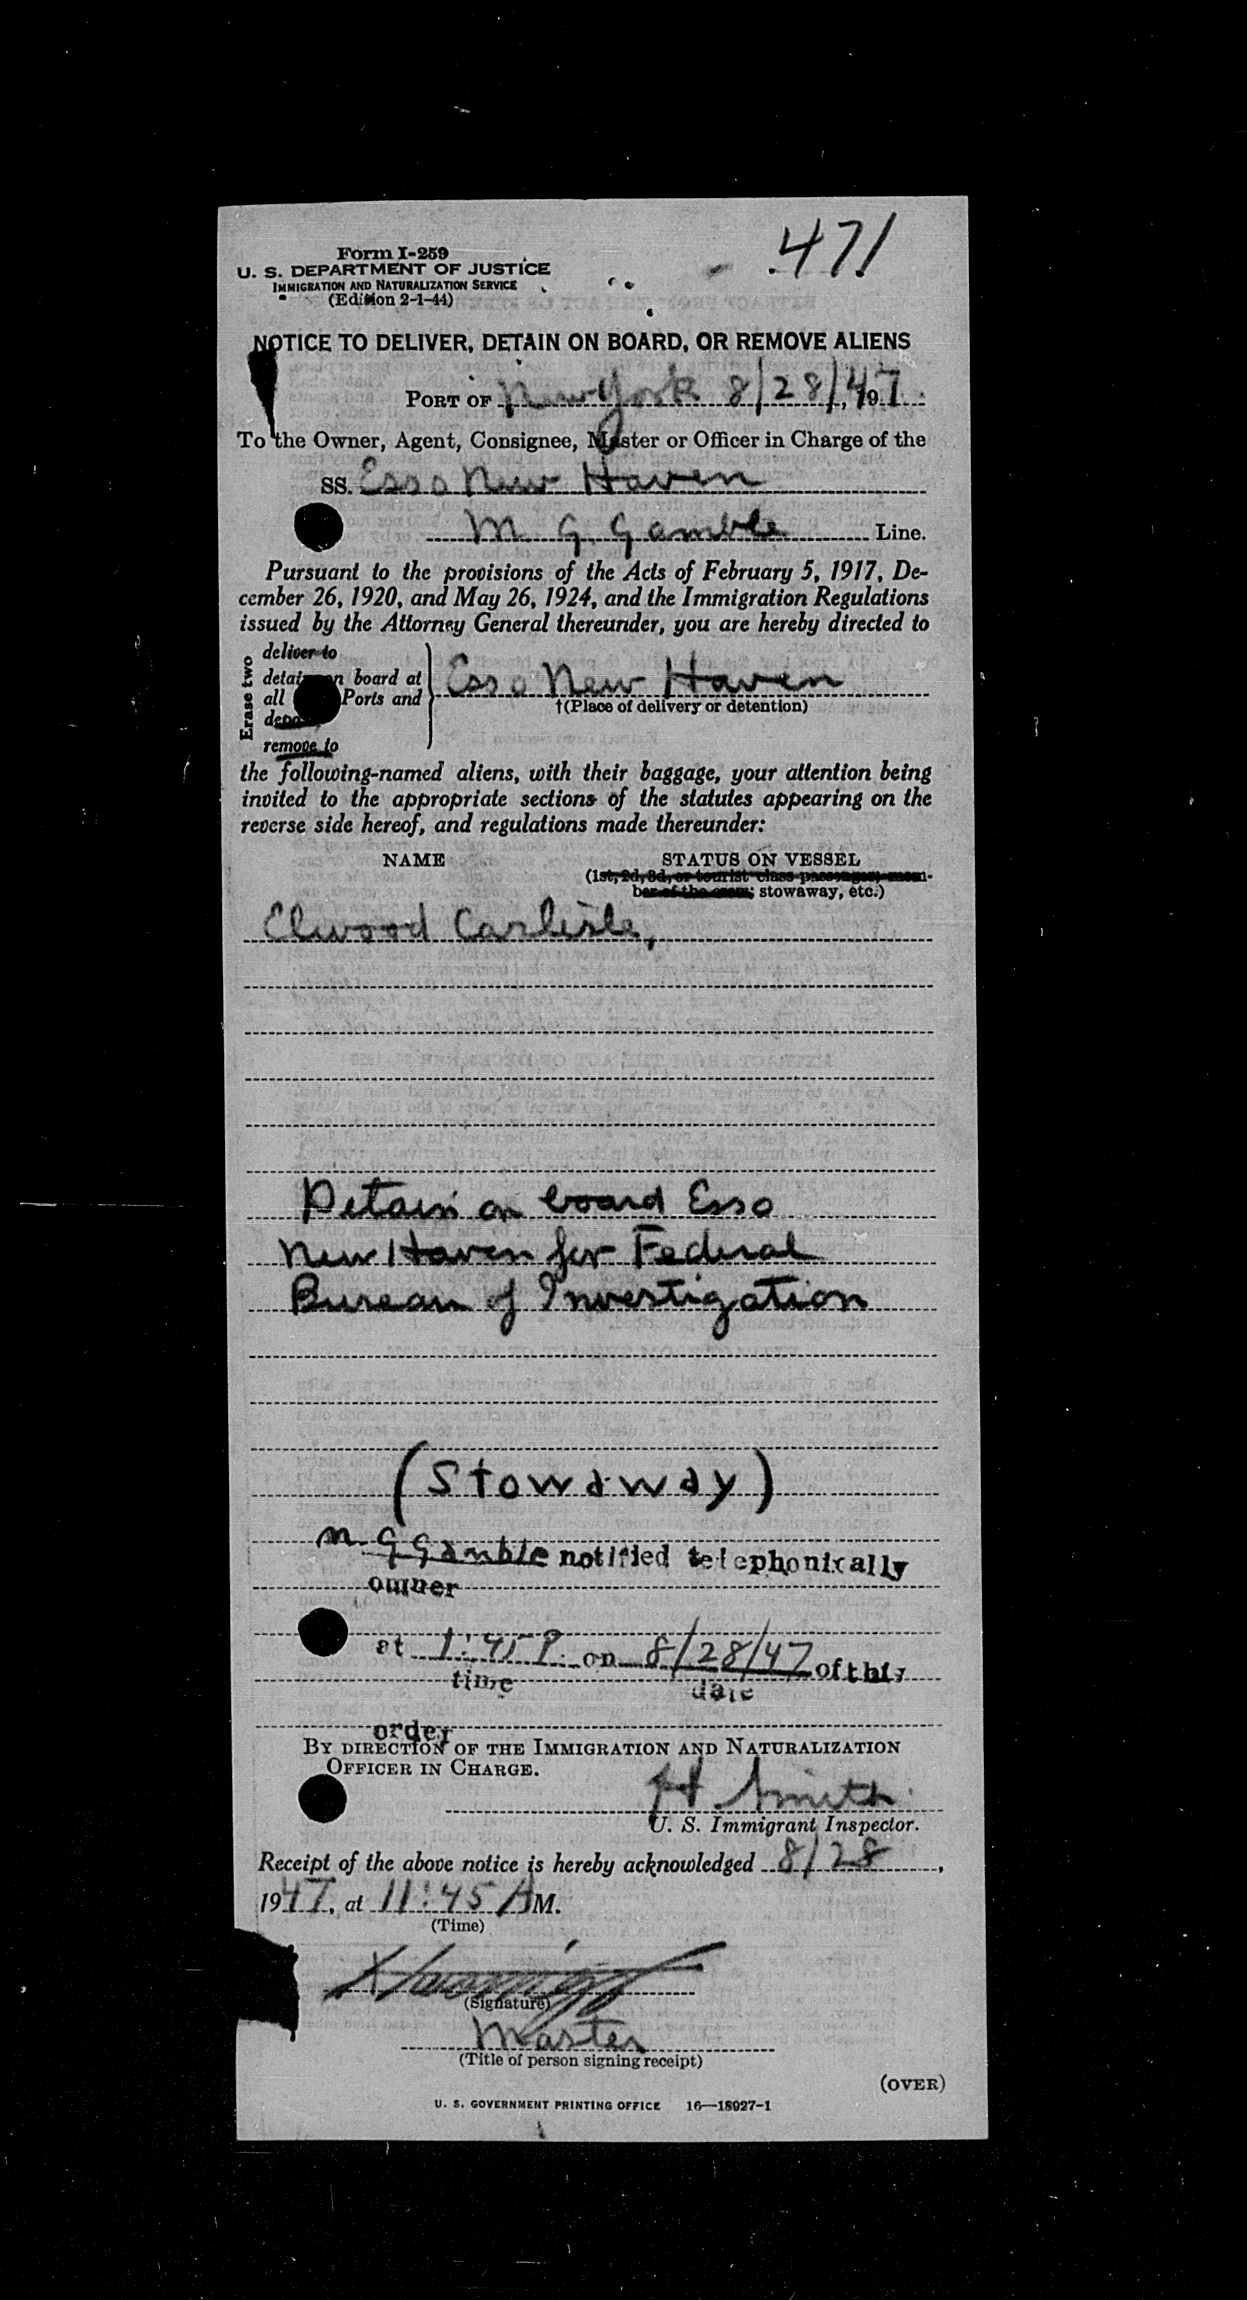 471
Form I-259
U. S. DEPARTMENT OF JUSTICE
IMMIGRATION AND NATURALIZATION SERVICE
(Edition 2-1-44)
NOTICE TO DELIVER, DETAIN ON BOARD, OR REMOVE ALIENS
PORT OF New York 8/28/47, 19
To the Owner, Agent, Consignee, Master or Officer in Charge of the
SS. Esso New Haven
M. G. Gamble Line.
Pursuant to the provisions of the Acts of February 5, 1917, De-
cember 26, 1920, and May 26, 1924, and the Immigration Regulations
issued by the Attorney General thereunder, you are hereby directed to
Erase two
deliver to
detain on board at
all Ports and
remove to
Esso New Haven
†(Place of delivery or detention)
the following-named aliens, with their baggage, your attention being
invited to the appropriate sections of the statutes appearing on the
reverse side hereof, and regulations made thereunder:
NAME STATUS ON VESSEL
(1st, 2d, 3d, or tourist class passenger, mem-
ber of the crew, stowaway, etc.)
Elwood Carlisle,
Detain on board Esso
New Haven for Federal
Bureau of Investigation
(Stowaway)
M. G Gamble notified telephonically
owner
at 1:45 P. on 8/28/47 of this
time date
order
BY DIRECTION OF THE IMMIGRATION AND NATURALIZATION
OFFICER IN CHARGE.
H Smith
U. S. Immigrant Inspector.
Receipt of the above notice is hereby acknowledged 8/28,
1947, at 11:45 A M.
(Time)
(Signature)
Master
(Title of person signing receipt)
(OVER)
U. S. GOVERNMENT PRINTING OFFICE 16—18027-1